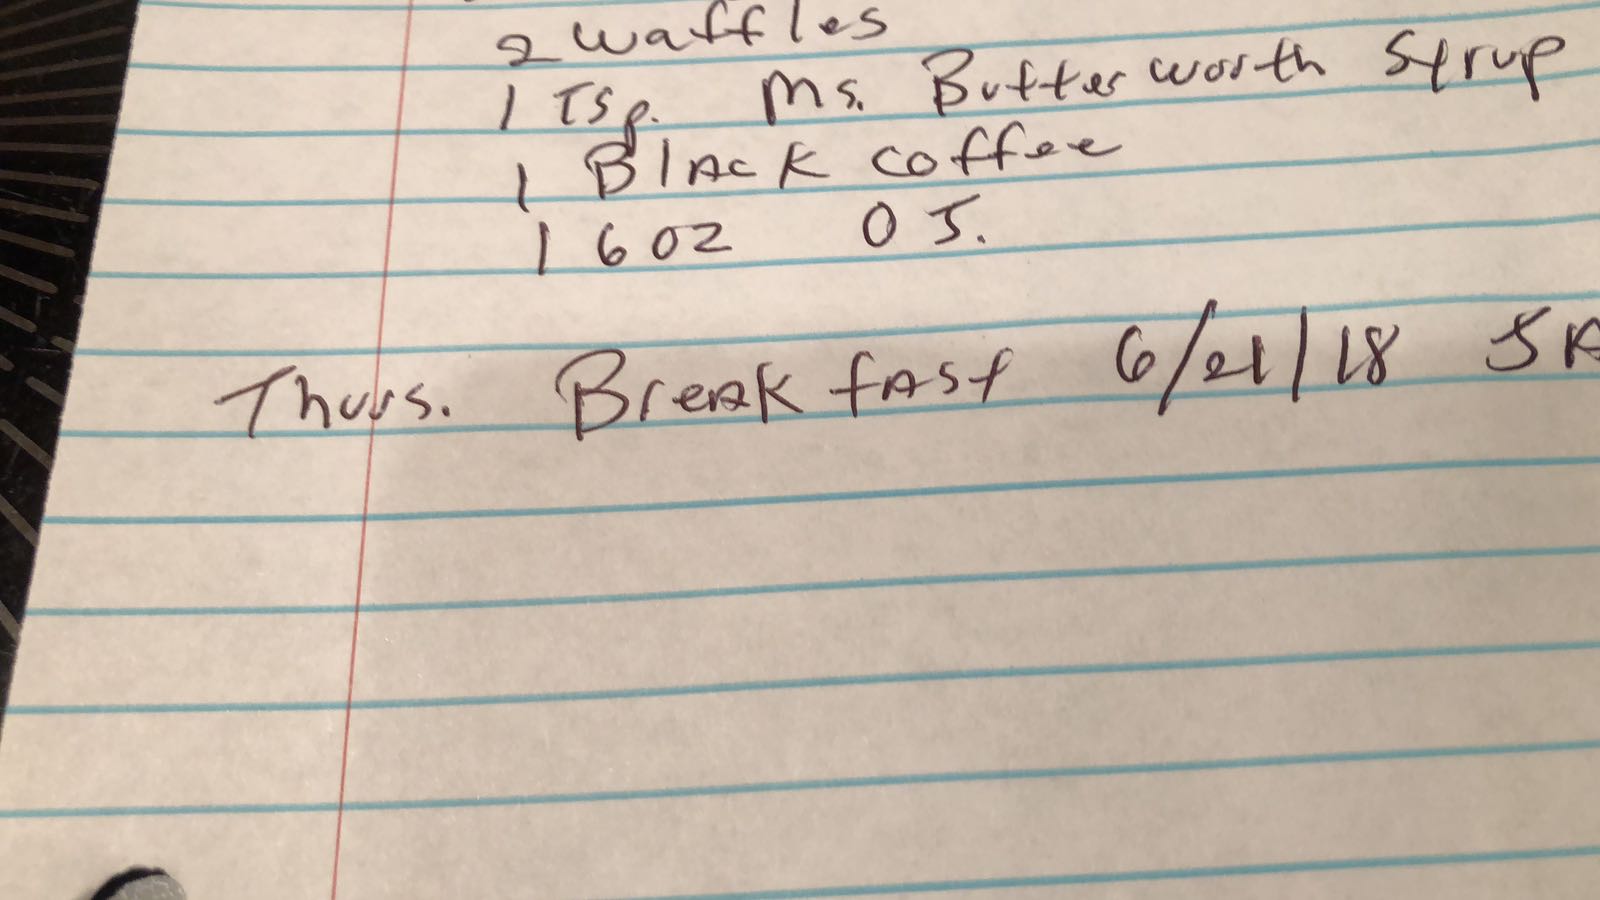 2 waffles
1 Tsp. Ms. Butterworth Syrup
1 Black coffee
1 6oz OJ.
Thurs. Breakfast 6/21/18 5A